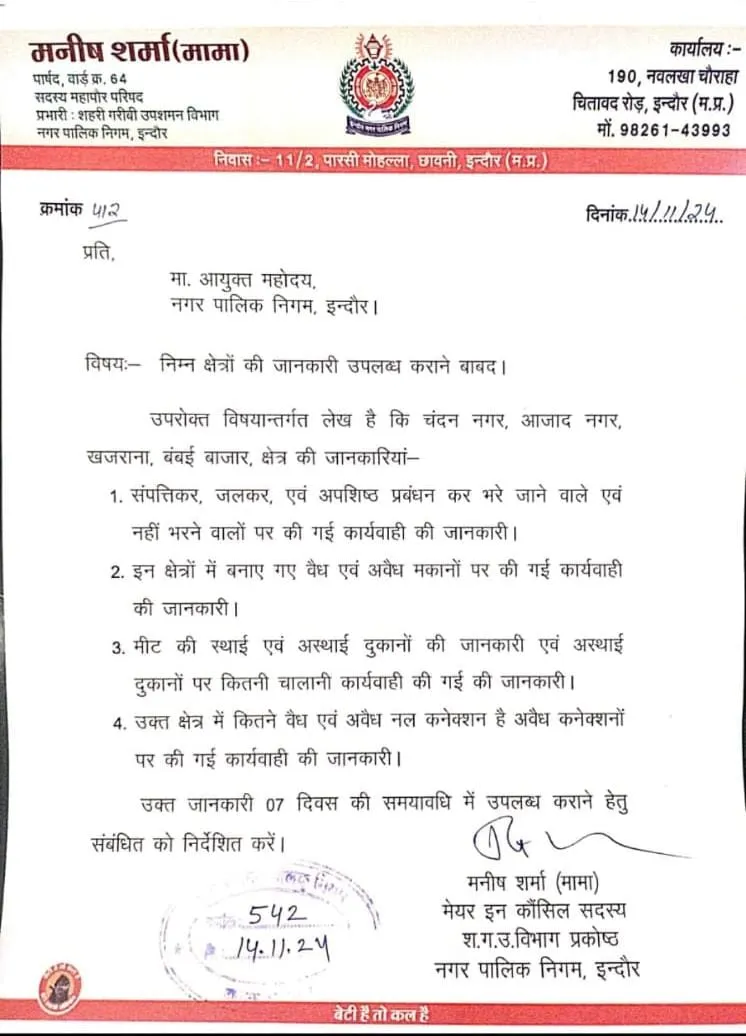 मनीष शर्मा(मामा)
पार्षद, वार्ड क्र. 64
सदस्य महापौर परिषद
प्रभारी : शहरी गरीबी उपशमन विभाग
नगर पालिक निगम, इन्दौर
कार्यालय :-
190, नवलखा चौराहा
चितावद रोड़, इन्दौर (म.प्र.)
मों. 98261-43993
निवास :- 11/2, पारसी मोहल्ला, छावनी, इन्दौर (म.प्र.)
क्रमांक 412
दिनांक.14/11/24..
प्रति,
मा. आयुक्त महोदय,
नगर पालिक निगम, इन्दौर।
विषयः– निम्न क्षेत्रों की जानकारी उपलब्ध कराने बाबद।
उपरोक्त विषयान्तर्गत लेख है कि चंदन नगर, आजाद नगर,
खजराना, बंबई बाजार, क्षेत्र की जानकारियां–
1. संपत्तिकर, जलकर, एवं अपशिष्ठ प्रबंधन कर भरे जाने वाले एवं
नहीं भरने वालों पर की गई कार्यवाही की जानकारी।
2. इन क्षेत्रों में बनाए गए वैध एवं अवैध मकानों पर की गई कार्यवाही
की जानकारी।
3. मीट की स्थाई एवं अस्थाई दुकानों की जानकारी एवं अस्थाई
दुकानों पर कितनी चालानी कार्यवाही की गई की जानकारी।
4. उक्त क्षेत्र में कितने वैध एवं अवैध नल कनेक्शन है अवैध कनेक्शनों
पर की गई कार्यवाही की जानकारी।
उक्त जानकारी 07 दिवस की समयावधि में उपलब्ध कराने हेतु
संबंधित को निर्देशित करें।
मनीष शर्मा (मामा)
मेयर इन कौंसिल सदस्य
श.ग.उ.विभाग प्रकोष्ठ
नगर पालिक निगम, इन्दौर
542
14.11.24
बेटी है तो कल है